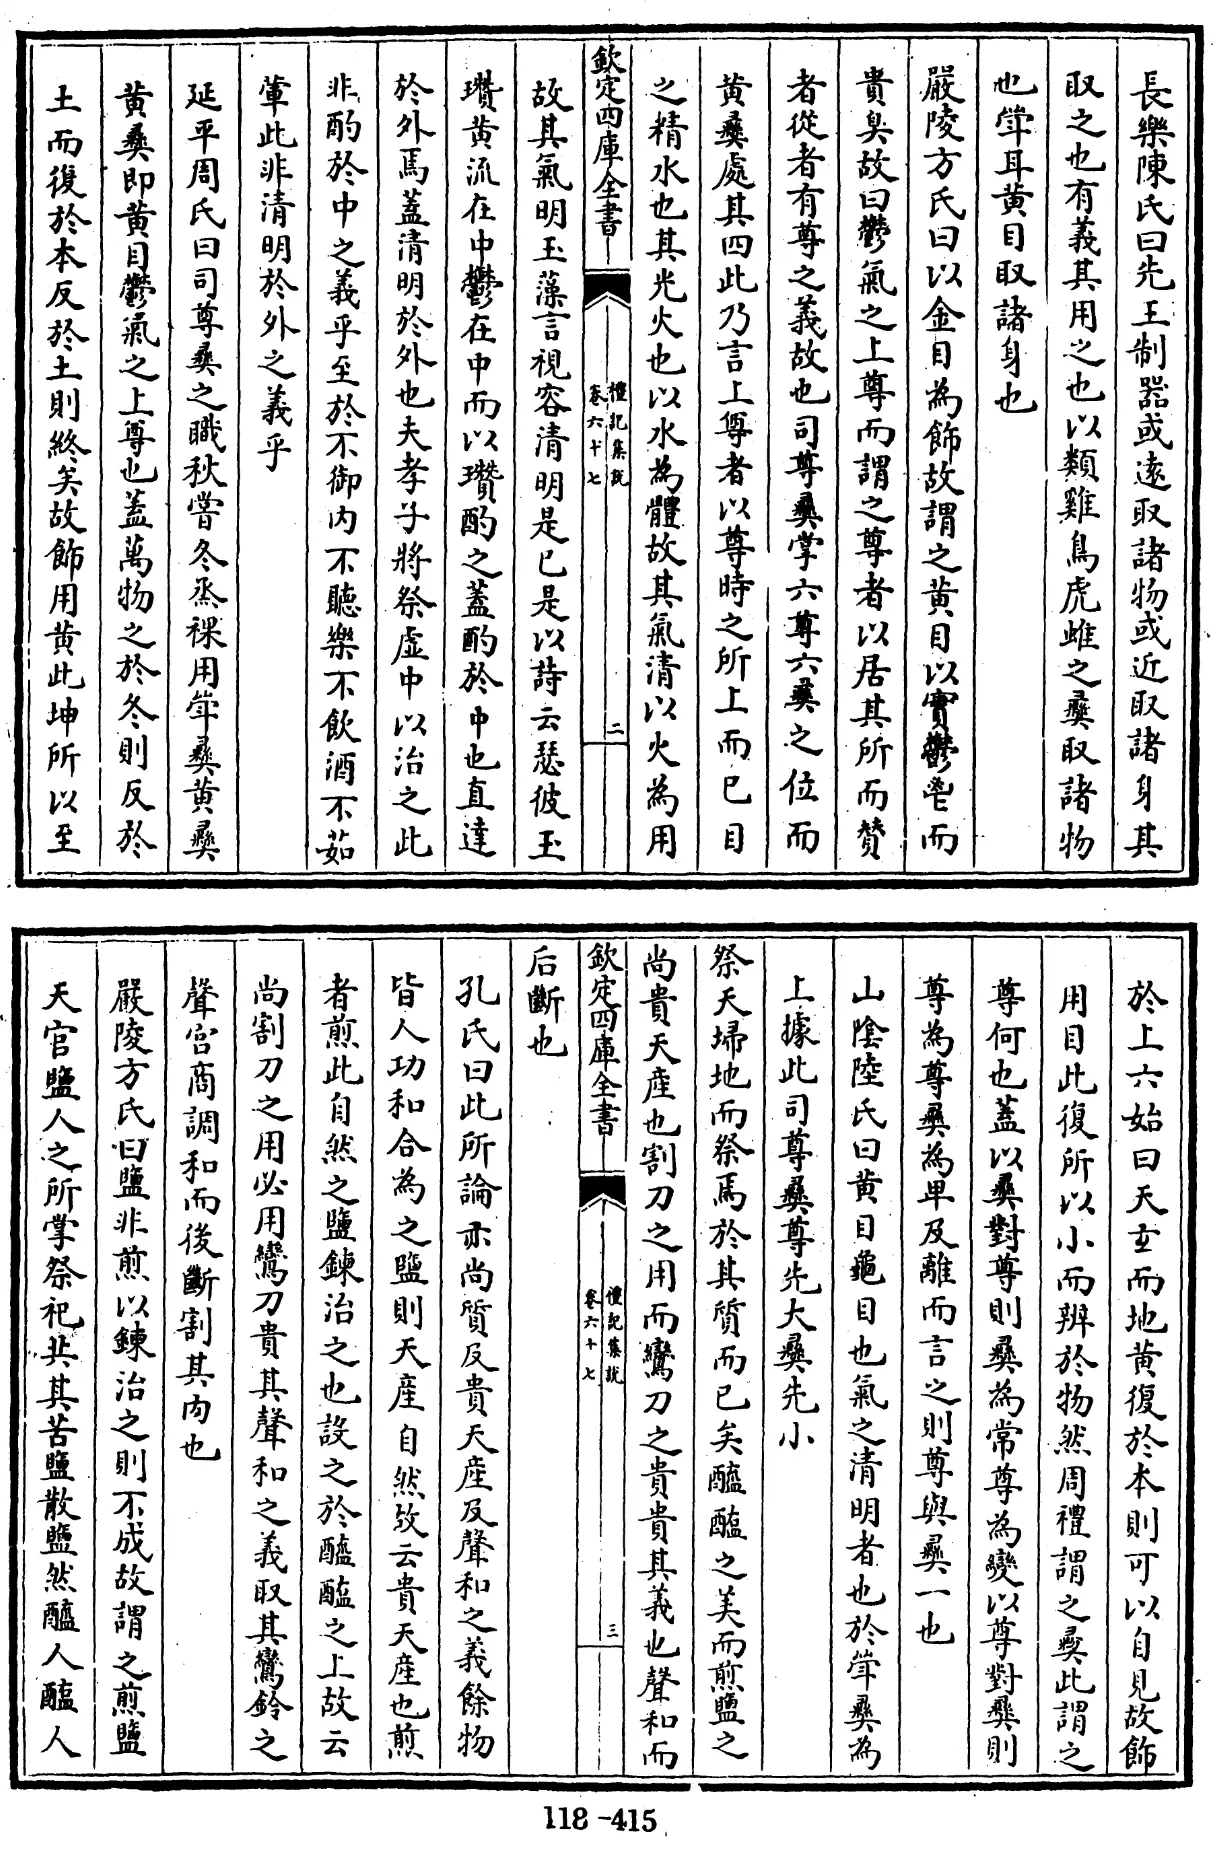 長樂陳氏曰先王制器或遠取諸物或近取諸身其
取之也有義其用之也以類雞鳥虎蜼之彝取諸物
也斝耳黄目取諸身也
嚴陵方氏曰以金目為飾故謂之黄目以實鬱鬯而
貴臭故曰鬱氣之上尊而謂之尊者以居其所而贊
者從者有尊之義故也司尊彝掌六尊六彝之位而
黄彝處其四此乃言上尊者以尊時之所上而已目
之精水也其光火也以水為體故其氣清以火為用
欽定四庫全書
禮記集說
卷六十七
二
故其氣明玉藻言視容清明是已是以詩云瑟彼玉
瓚黄流在中鬱在中而以瓚酌之蓋酌於中也直達
於外焉蓋清明於外也夫孝子將祭虚中以治之此
非酌於中之義乎至於不御内不聽樂不飲酒不茹
葷此非清明於外之義乎
延平周氏曰司尊彝之職秋嘗冬烝祼用斝彝黄彝
黄彝即黄目鬱氣之上尊也蓋萬物之於冬則反於
土而復於本反於土則終矣故飾用黄此坤所以至
於上六始曰天𤣥而地黄復於本則可以自見故飾
用目此復所以小而辨於物然周禮謂之彝此謂之
尊何也蓋以彝對尊則彝為常尊為變以尊對彝則
尊為尊彝為卑及離而言之則尊與彝一也
山陰陸氏曰黄目龜目也氣之清明者也於斝彝為
上據此司尊彝尊先大彝先小
祭天埽地而祭焉於其質而已矣醯醢之美而煎鹽之
尚貴天產也割刀之用而鸞刀之貴貴其義也聲和而
欽定四庫全書
禮記集說
卷六十七
三
后斷也
孔氏曰此所論亦尚質及貴天產及聲和之義餘物
皆人功和合為之鹽則天產自然故云貴天產也煎
者煎此自然之鹽鍊治之也設之於醯醢之上故云
尚割刀之用必用鸞刀貴其聲和之義取其鸞鈴之
聲宫商調和而後斷割其肉也
嚴陵方氏曰鹽非煎以鍊治之則不成故謂之煎鹽
天官鹽人之所掌祭祀共其苦鹽散鹽然醯人醢人
118-415